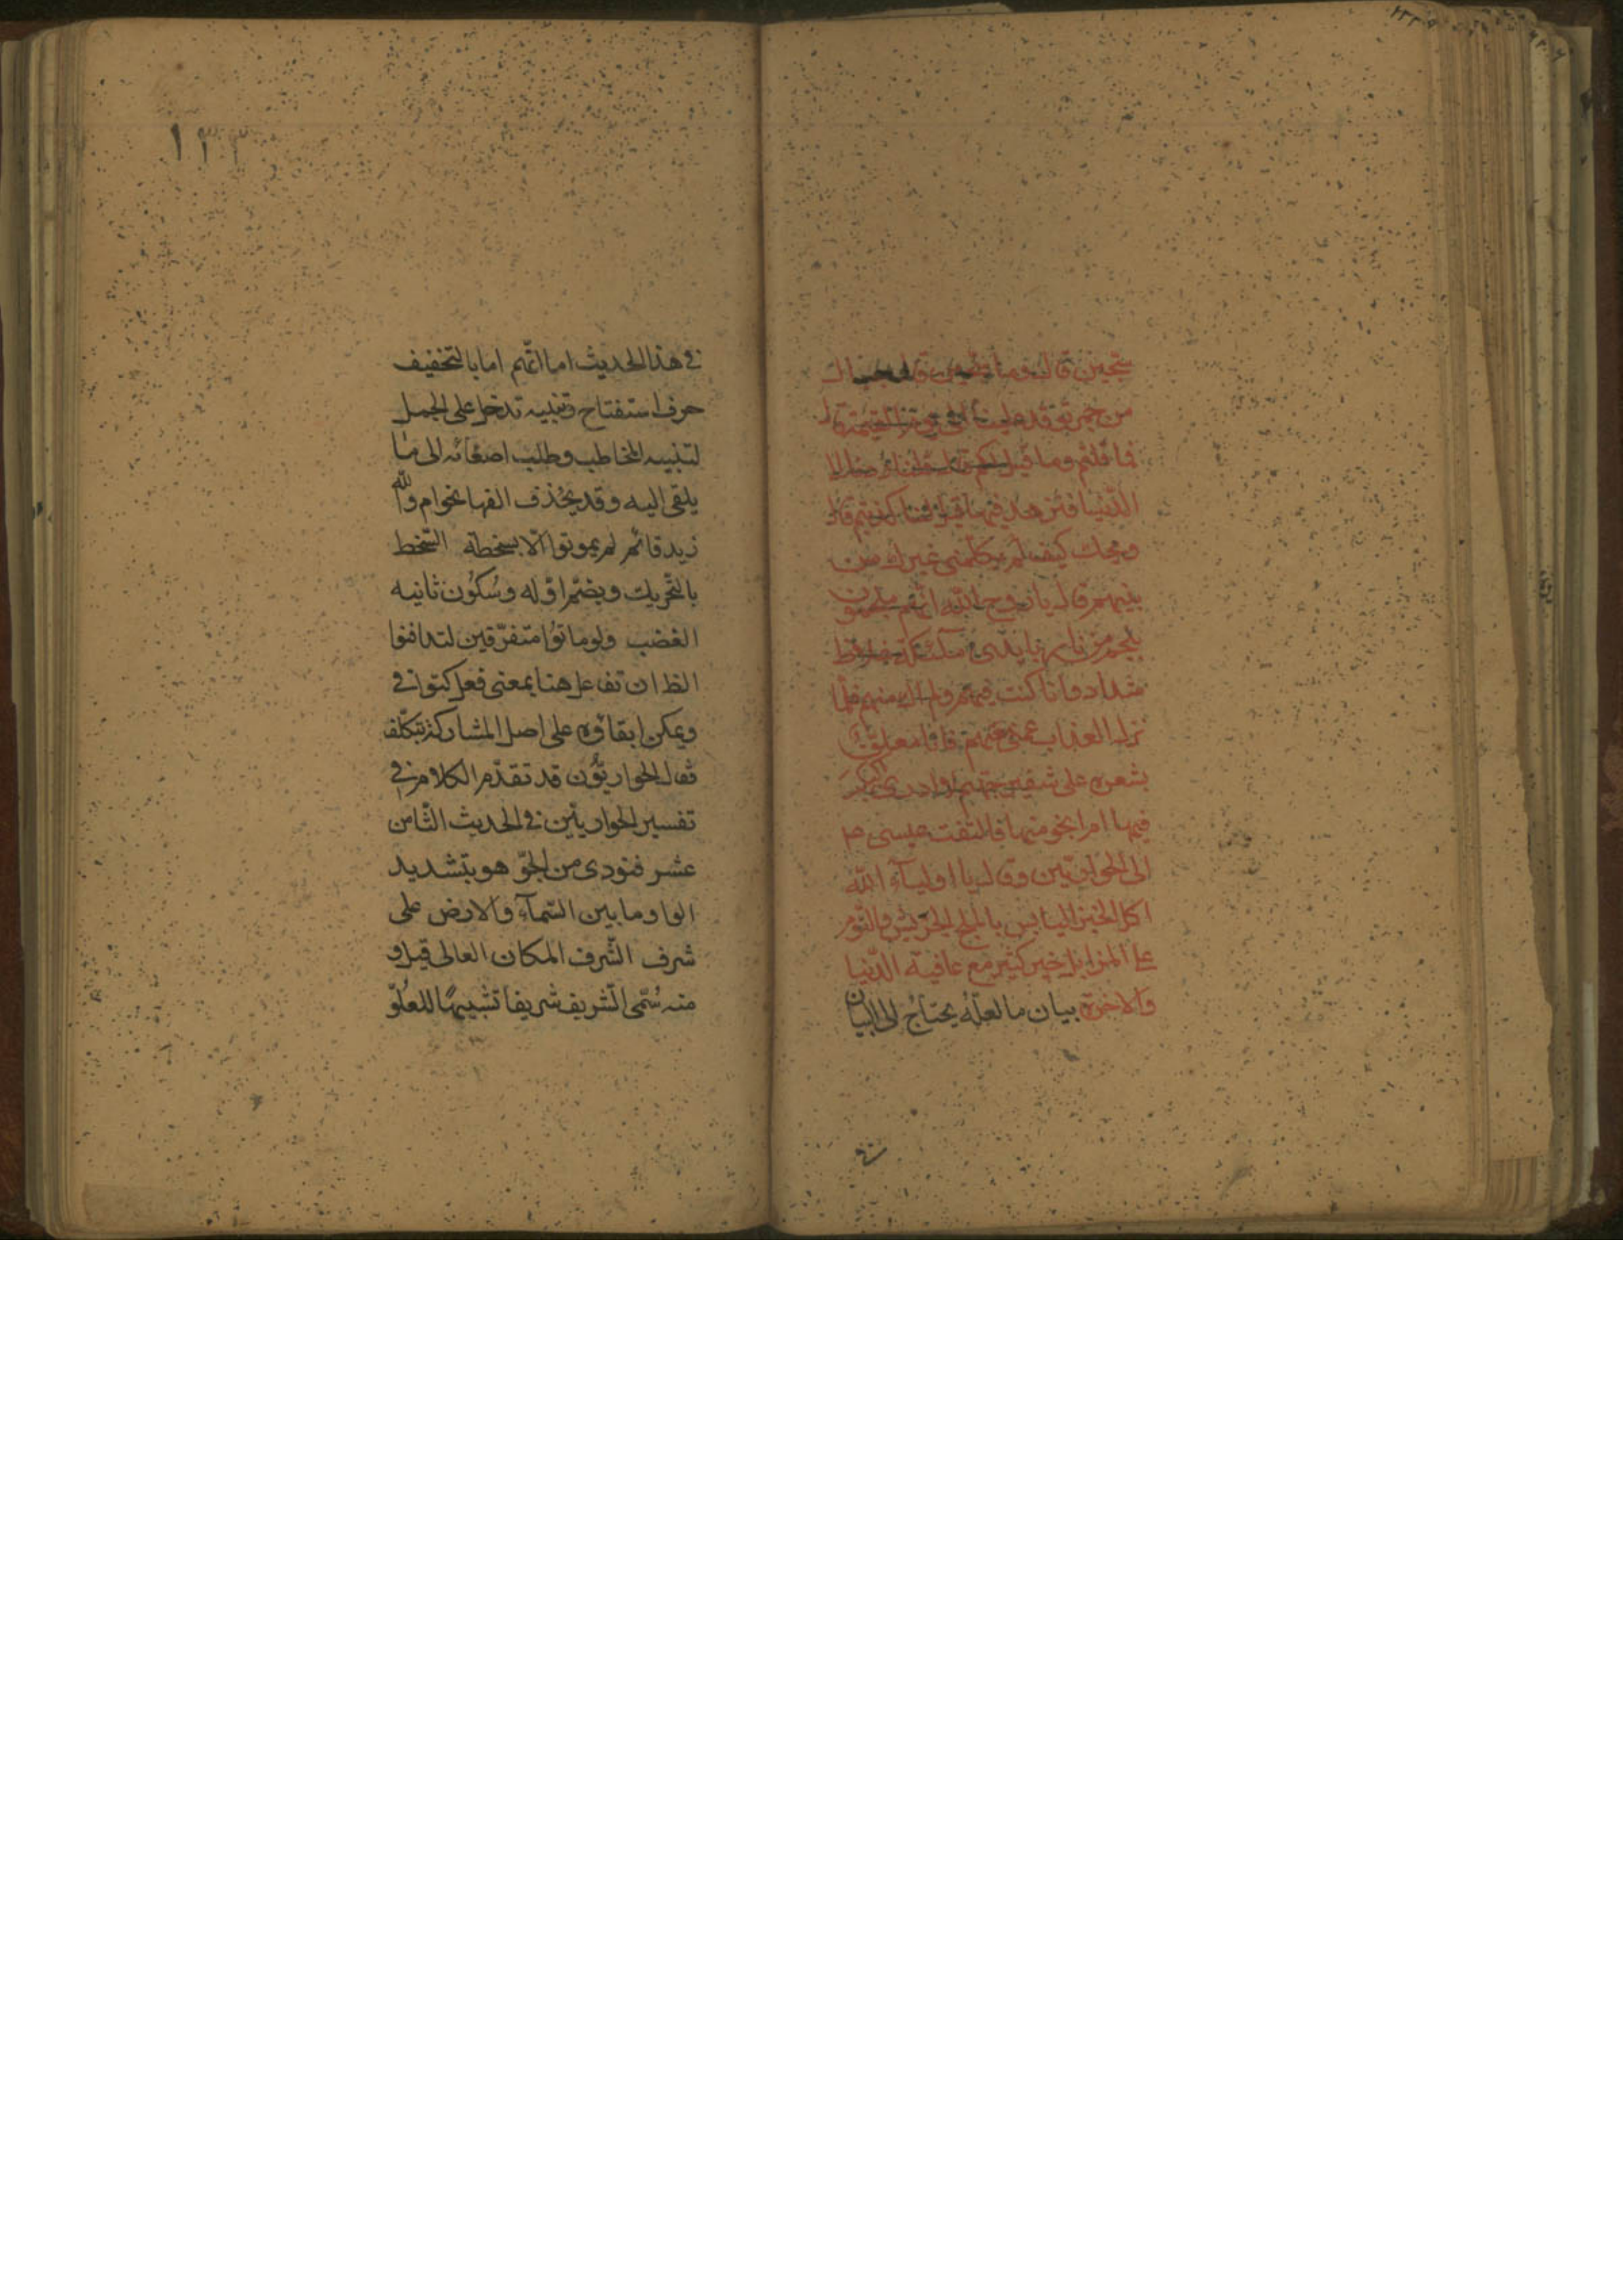 سجين قال وما سجين قال جبال
من جمر توقد علينا الى يوم القيمة قال
فما قلتم وما قيل لكم قال قلنا ردنا الى
الدنيا فنزهد فيها قيل لنا كذبتم قال
ويحك كيف لم يكلمنى غيرك من
بينهم قال يا روح الله انهم ملجمون
بلجم من نار بايدى ملائكة غلاظ
شداد وانا كنت فيهم ولم اك منهم فلما
نزل العذاب عمنى معهم فانا معلق
بشعرة على شفير جهنم لا ادرى اكبكب
فيها ام انجو منها فالتفت عيسى ع
الى الحواريّين وقال يا اولياء الله
اكل الخبز اليابس بالملح الجريش والنّوم
على المزابل خير كثير مع عافية الدّنيا
والاخرة بيان ما لعلّه يحتاج الى البيان
فى هذا الحديث اما انّهم اما بالتخفيف
حرف استفتاح وتنبيه تدخل على الجمل
لتنبيه المخاطب وطلب اصغائه الى ما
يلقى اليه وقد يحذف الفها نحو ام والله
زيد قائم لم يموتوا الّا بسخطة السّخط
بالتّحريك وبضمّ اوّله وسُكُون ثانيه
الغضب ولو ماتوُا متفرّقين لتدافنوا
الظ ان تفاعل هنا بمعنى فعل كتوانى
ويمكن ابقاؤه على اصل المشاركة بتكلّف
فقال الحواريّوُن قد تقدّم الكلام فى
تفسير الحواريّين فى الحديث الثّامن
عشر فنودى من الجوّ هو بتشديد
الواو ما بين السّماء والارض على
شرف الشّرف المكان العالى قيل و
منه سُمّى الشّريف شريفا تشبيهًا للعُلوّ